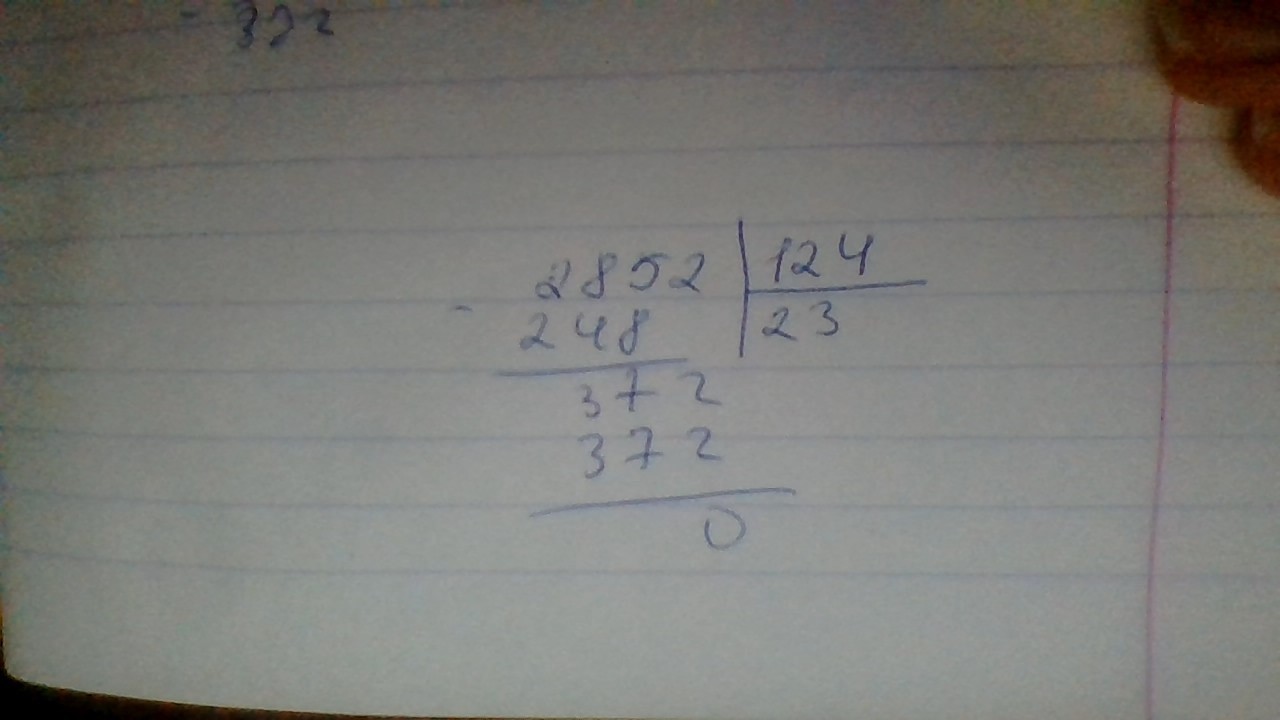 - 372
2852 | 124
- 248 | 23
372
372
0